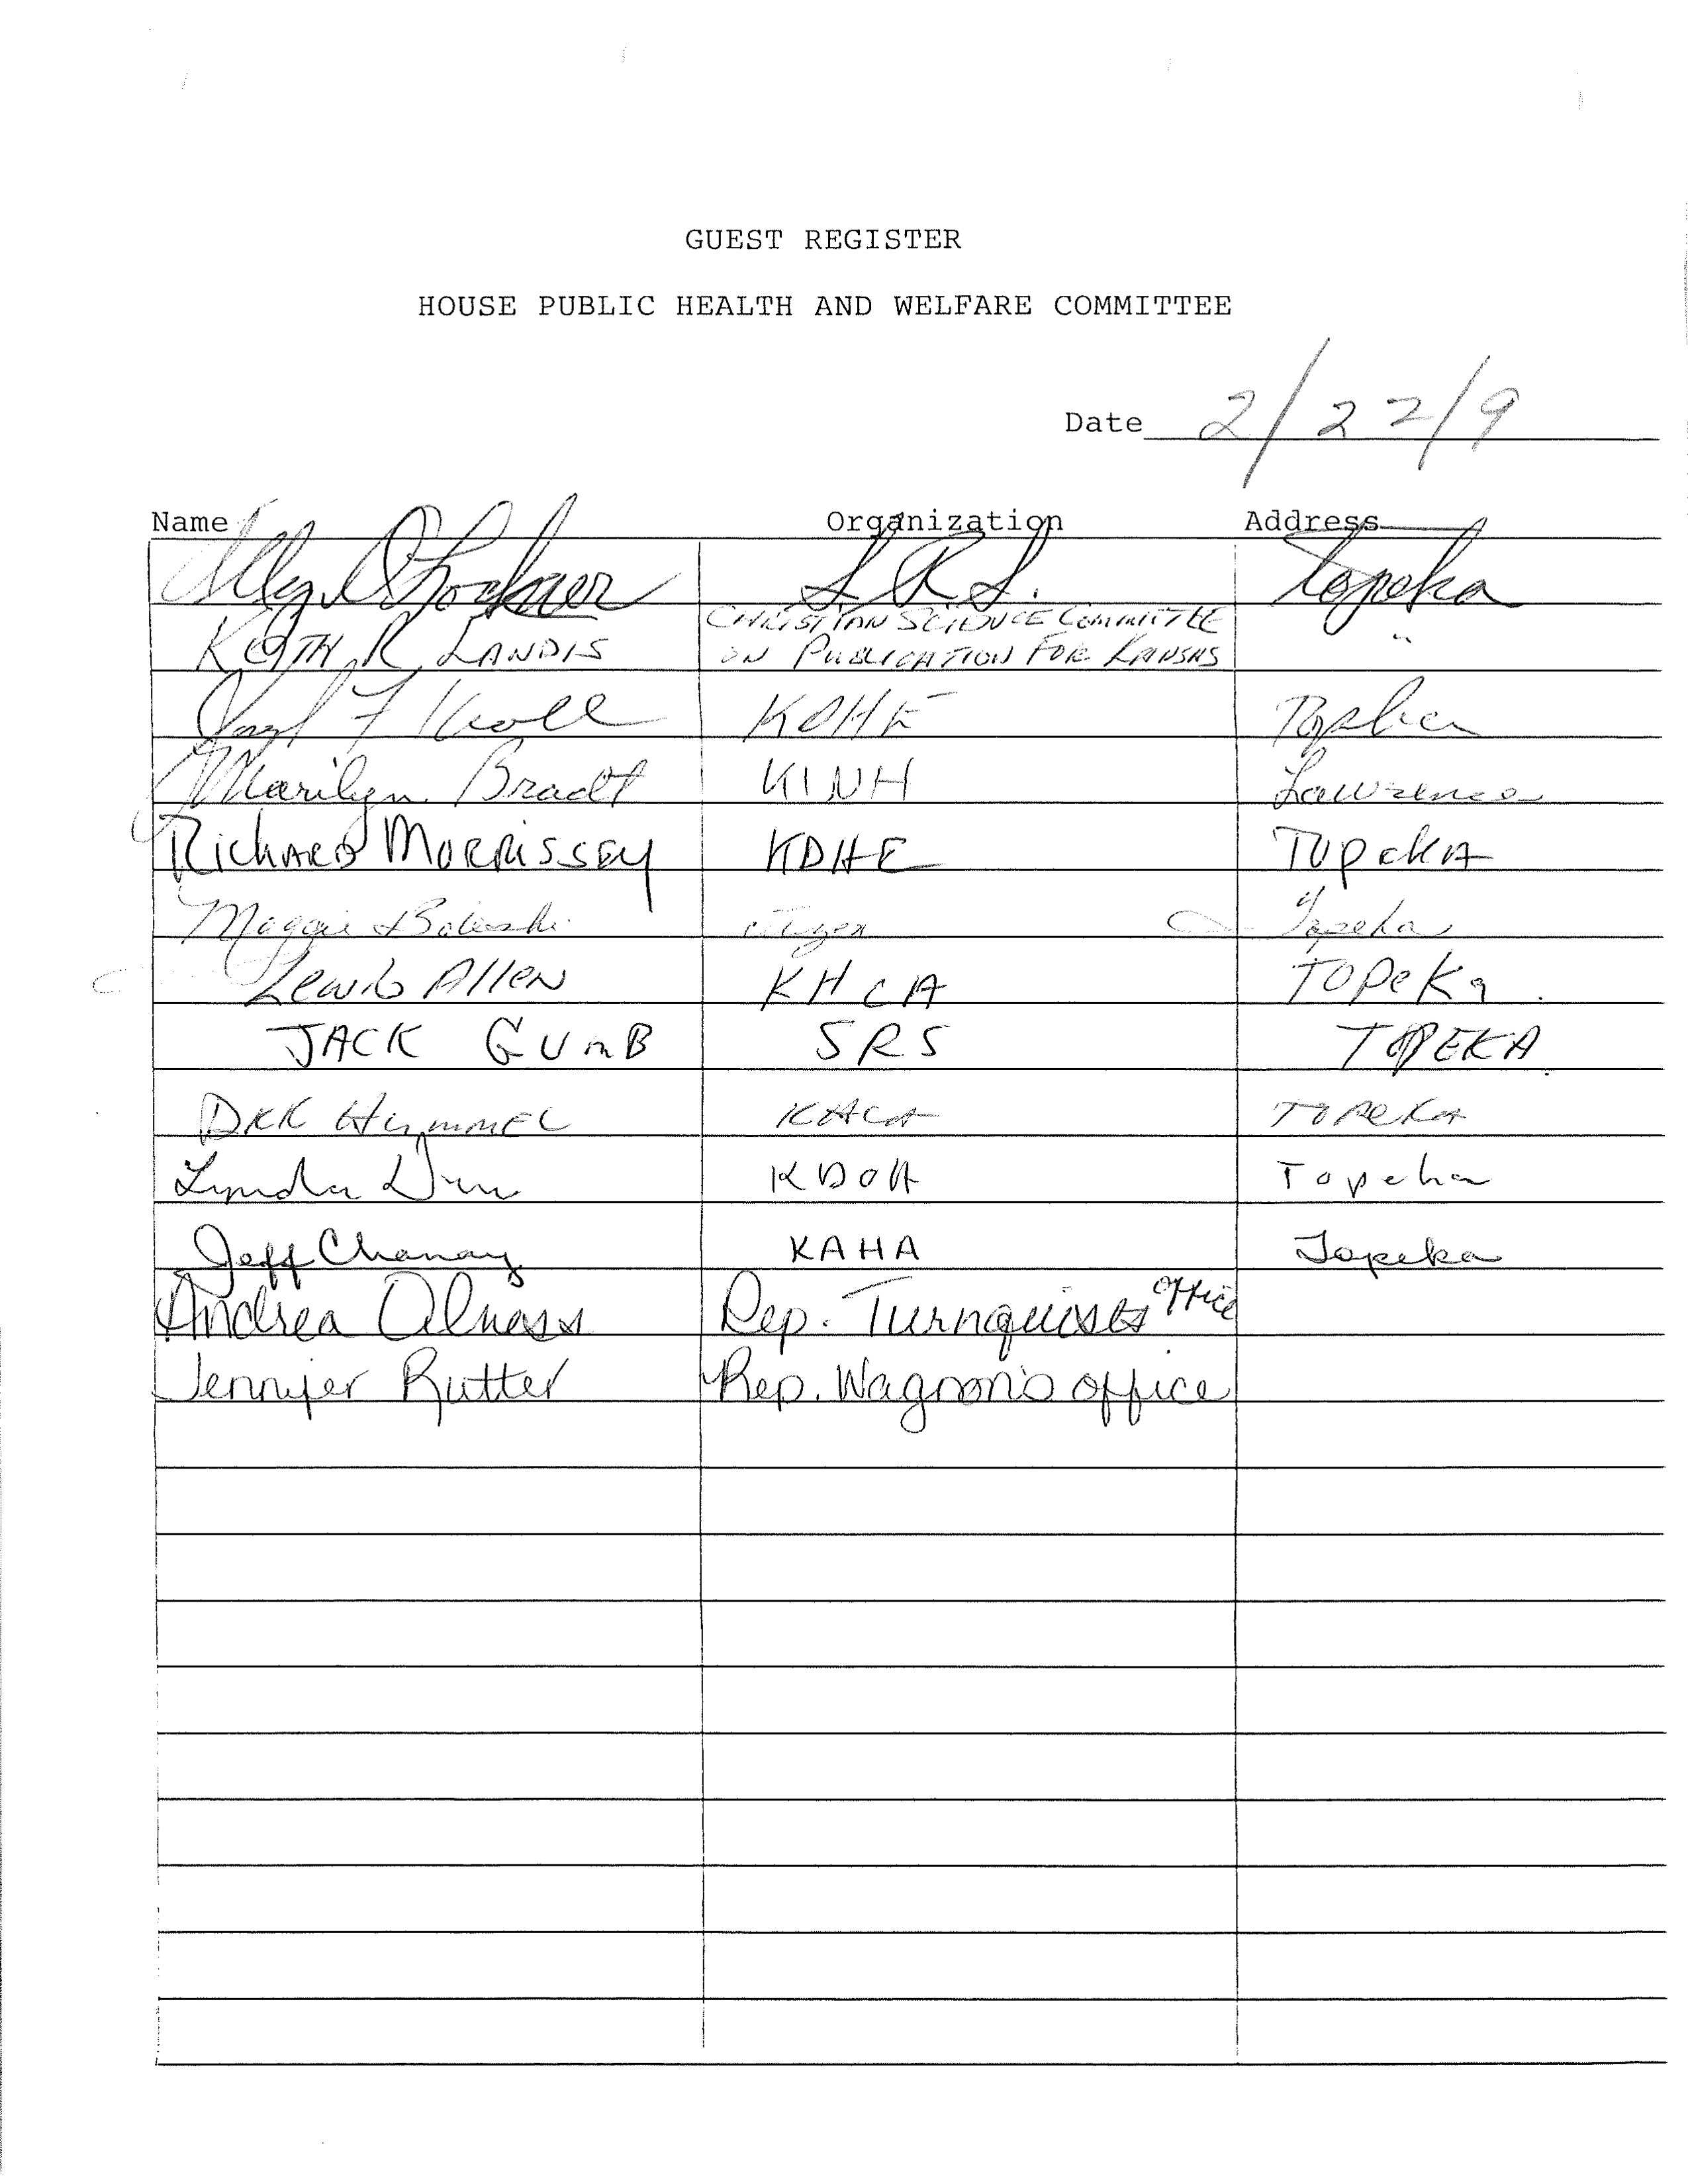 GUEST REGISTER
HOUSE PUBLIC HEALTH AND WELFARE COMMITTEE
Date 2/22/9
Name Organization Address
S.R.S. Topeka
KEITH R LANDIS CHRISTIAN SCIENCE COMMITTEE ON PUBLICATION FOR KANSAS "
F Kroll KDHE Topeka
Marilyn Bradt KINH Lawrence
RICHARD MORRISSEY KDHE TOPEKA
Maggie citizen Topeka
Lewis Allen KHCA TOPeKa
JACK GUMB SRS TOPEKA
HUMMEL KHCA TOPEKA
Lynda KDOA Topeka
Jeff Chanay KAHA Topeka
Andrea Rep. Turnquists office
Jennifer Rutter Rep. Wagnon's office